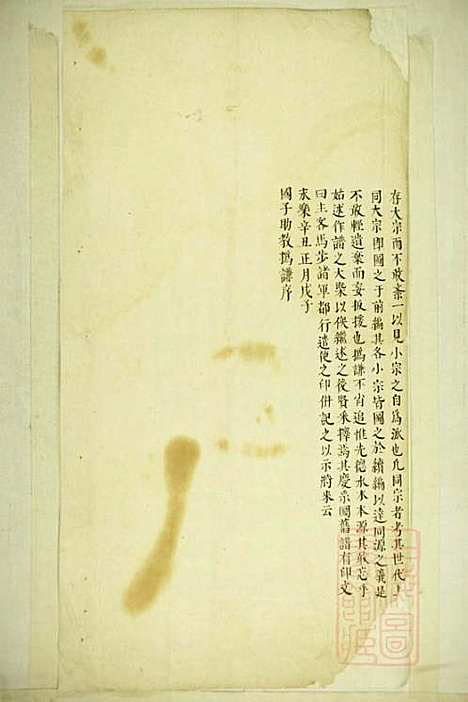 存大宗而不敢紊一以見小宗之自為派也凡同宗者考其世代上
同大宗即圖之于前編其各小宗皆圖之於續編以達同源之義是
不敢輕遺棄而妄扳援也撝謙不肖追惟先德水木本源其敢忘乎
姑述作譜之大槩以俟繼述之後賢采擇焉其慶系圖舊譜有印文
曰主客馬步諸軍都行遣使之印併記之以示將來云
永樂辛丑正月戊子
國子助教撝謙序